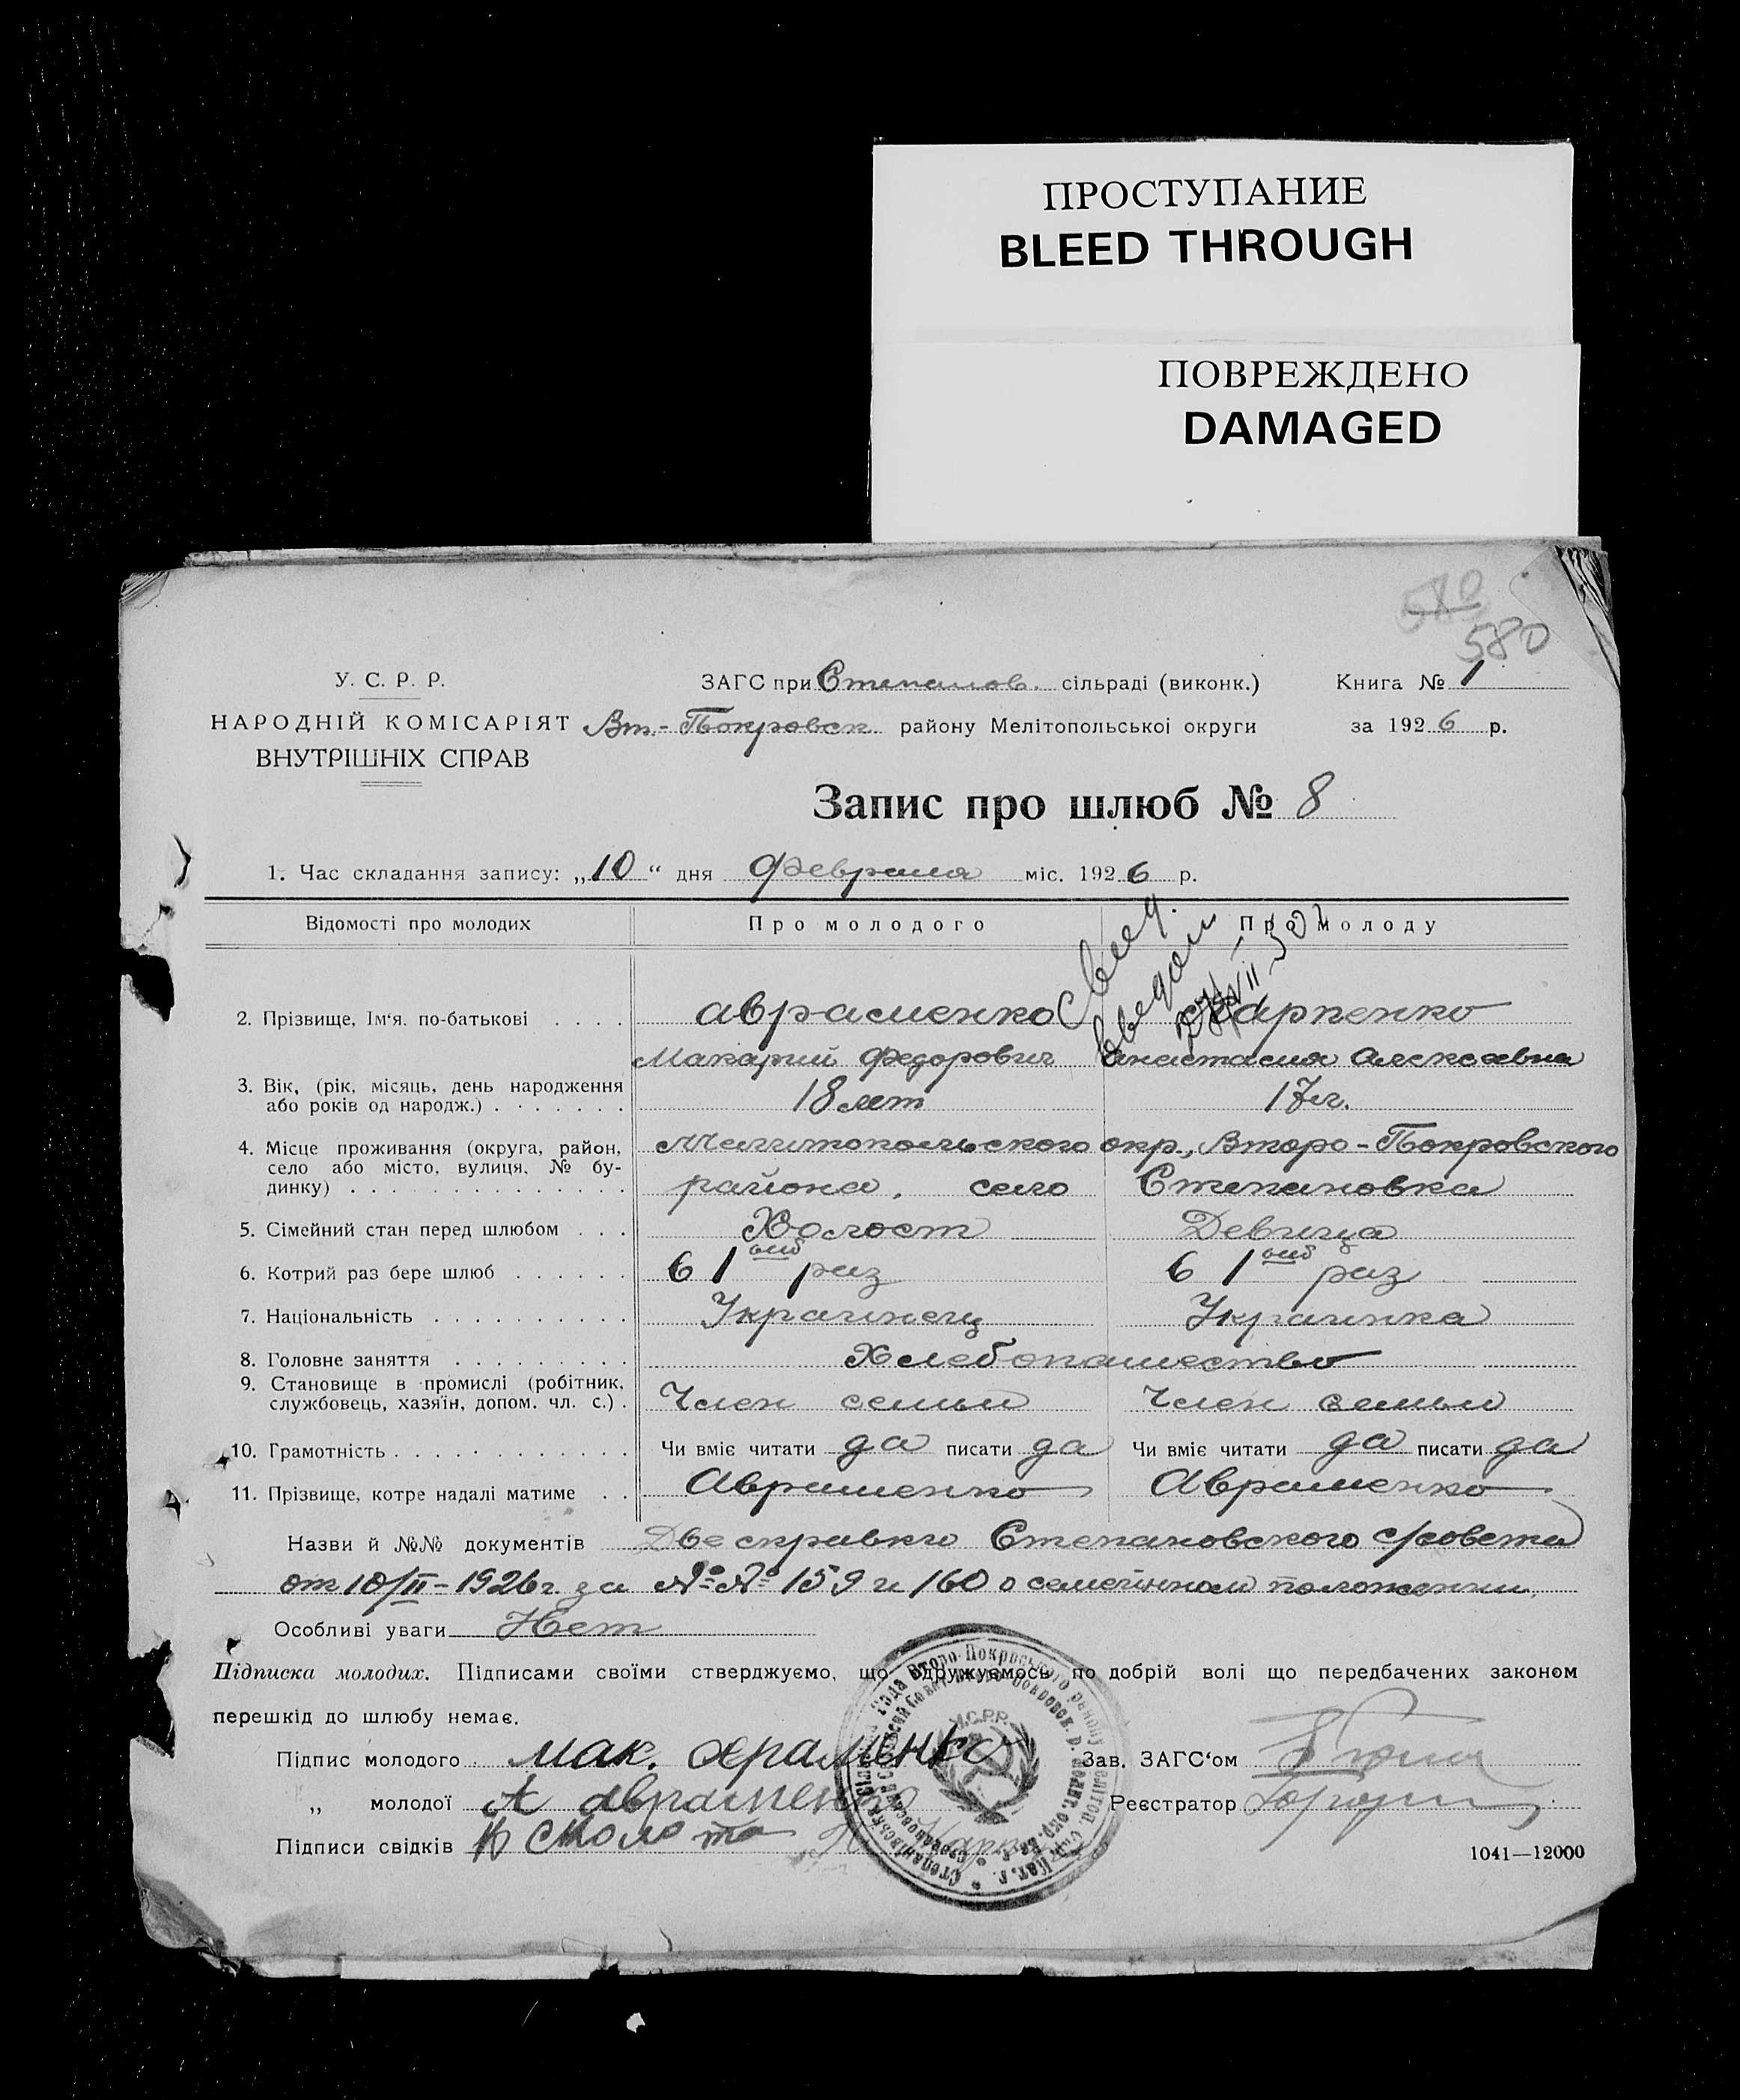 ПРОСТУПАНИЕ
BLEED THROUGH
ПОВРЕЖДЕНО
DAMAGED
580
580
У. С. Р. Р.
НАРОДНІЙ КОМІСАРІЯТ
ВНУТРІШНІХ СПРАВ
ЗАГС при Степанов. сільраді (виконк.)
Вт.-Покровск. району Мелітопольської округи
Книга № 1
за 1926 р.
Запис про шлюб № 8
1. Час складання запису: „10“ дня Февраля міс. 1926 р.
Відомості про молодих Про молодого Про молоду
2. Прізвище, Ім‘я, по-батькові . . . . Авраменко Карпенко
Макарий Федорович Анастасия Алексеевна
3. Вік, (рік, місяць, день народження
або років од народж.) . . . . . . . 18 лет 17 л.
4. Місце проживання (округа, район,
село або місто, вулиця, № бу-
динку) . . . . . . . . . . . . . .
Мелитопольского окр., Второ-Покровского
района, село Степановка
5. Сімейний стан перед шлюбом . . . Холост Девица
6. Котрий раз бере шлюб . . . . . . в 1 раз в 1 раз
7. Національність . . . . . . . . . . Украинец Украинка
8. Головне заняття . . . . . . . . . Хлебопашество
9. Становище в промислі (робітник,
службовець, хазяїн, допом. чл. с.) . Член семьи Член семьи
10. Грамотність . . . . . . . . . . . . Чи вміє читати да писати да Чи вміє читати да писати да
11. Прізвище, котре надалі матиме . . Авраменко Авраменко
Назви й №№ документів Две справки Степановского с/совета
от 10/II-1926 г. за №№ 159 и 160 о семейном положении.
Особливі уваги Нет
Підписка молодих. Підписами своїми стверджуємо, що одружуємось по добрій волі що передбачених законом
перешкід до шлюбу немає.
Підпис молодого мак. Зав. ЗАГС‘ом
„ молодої А авраменко Реєстратор
Підписи свідків
У.С.Р.Р.
1041—12000